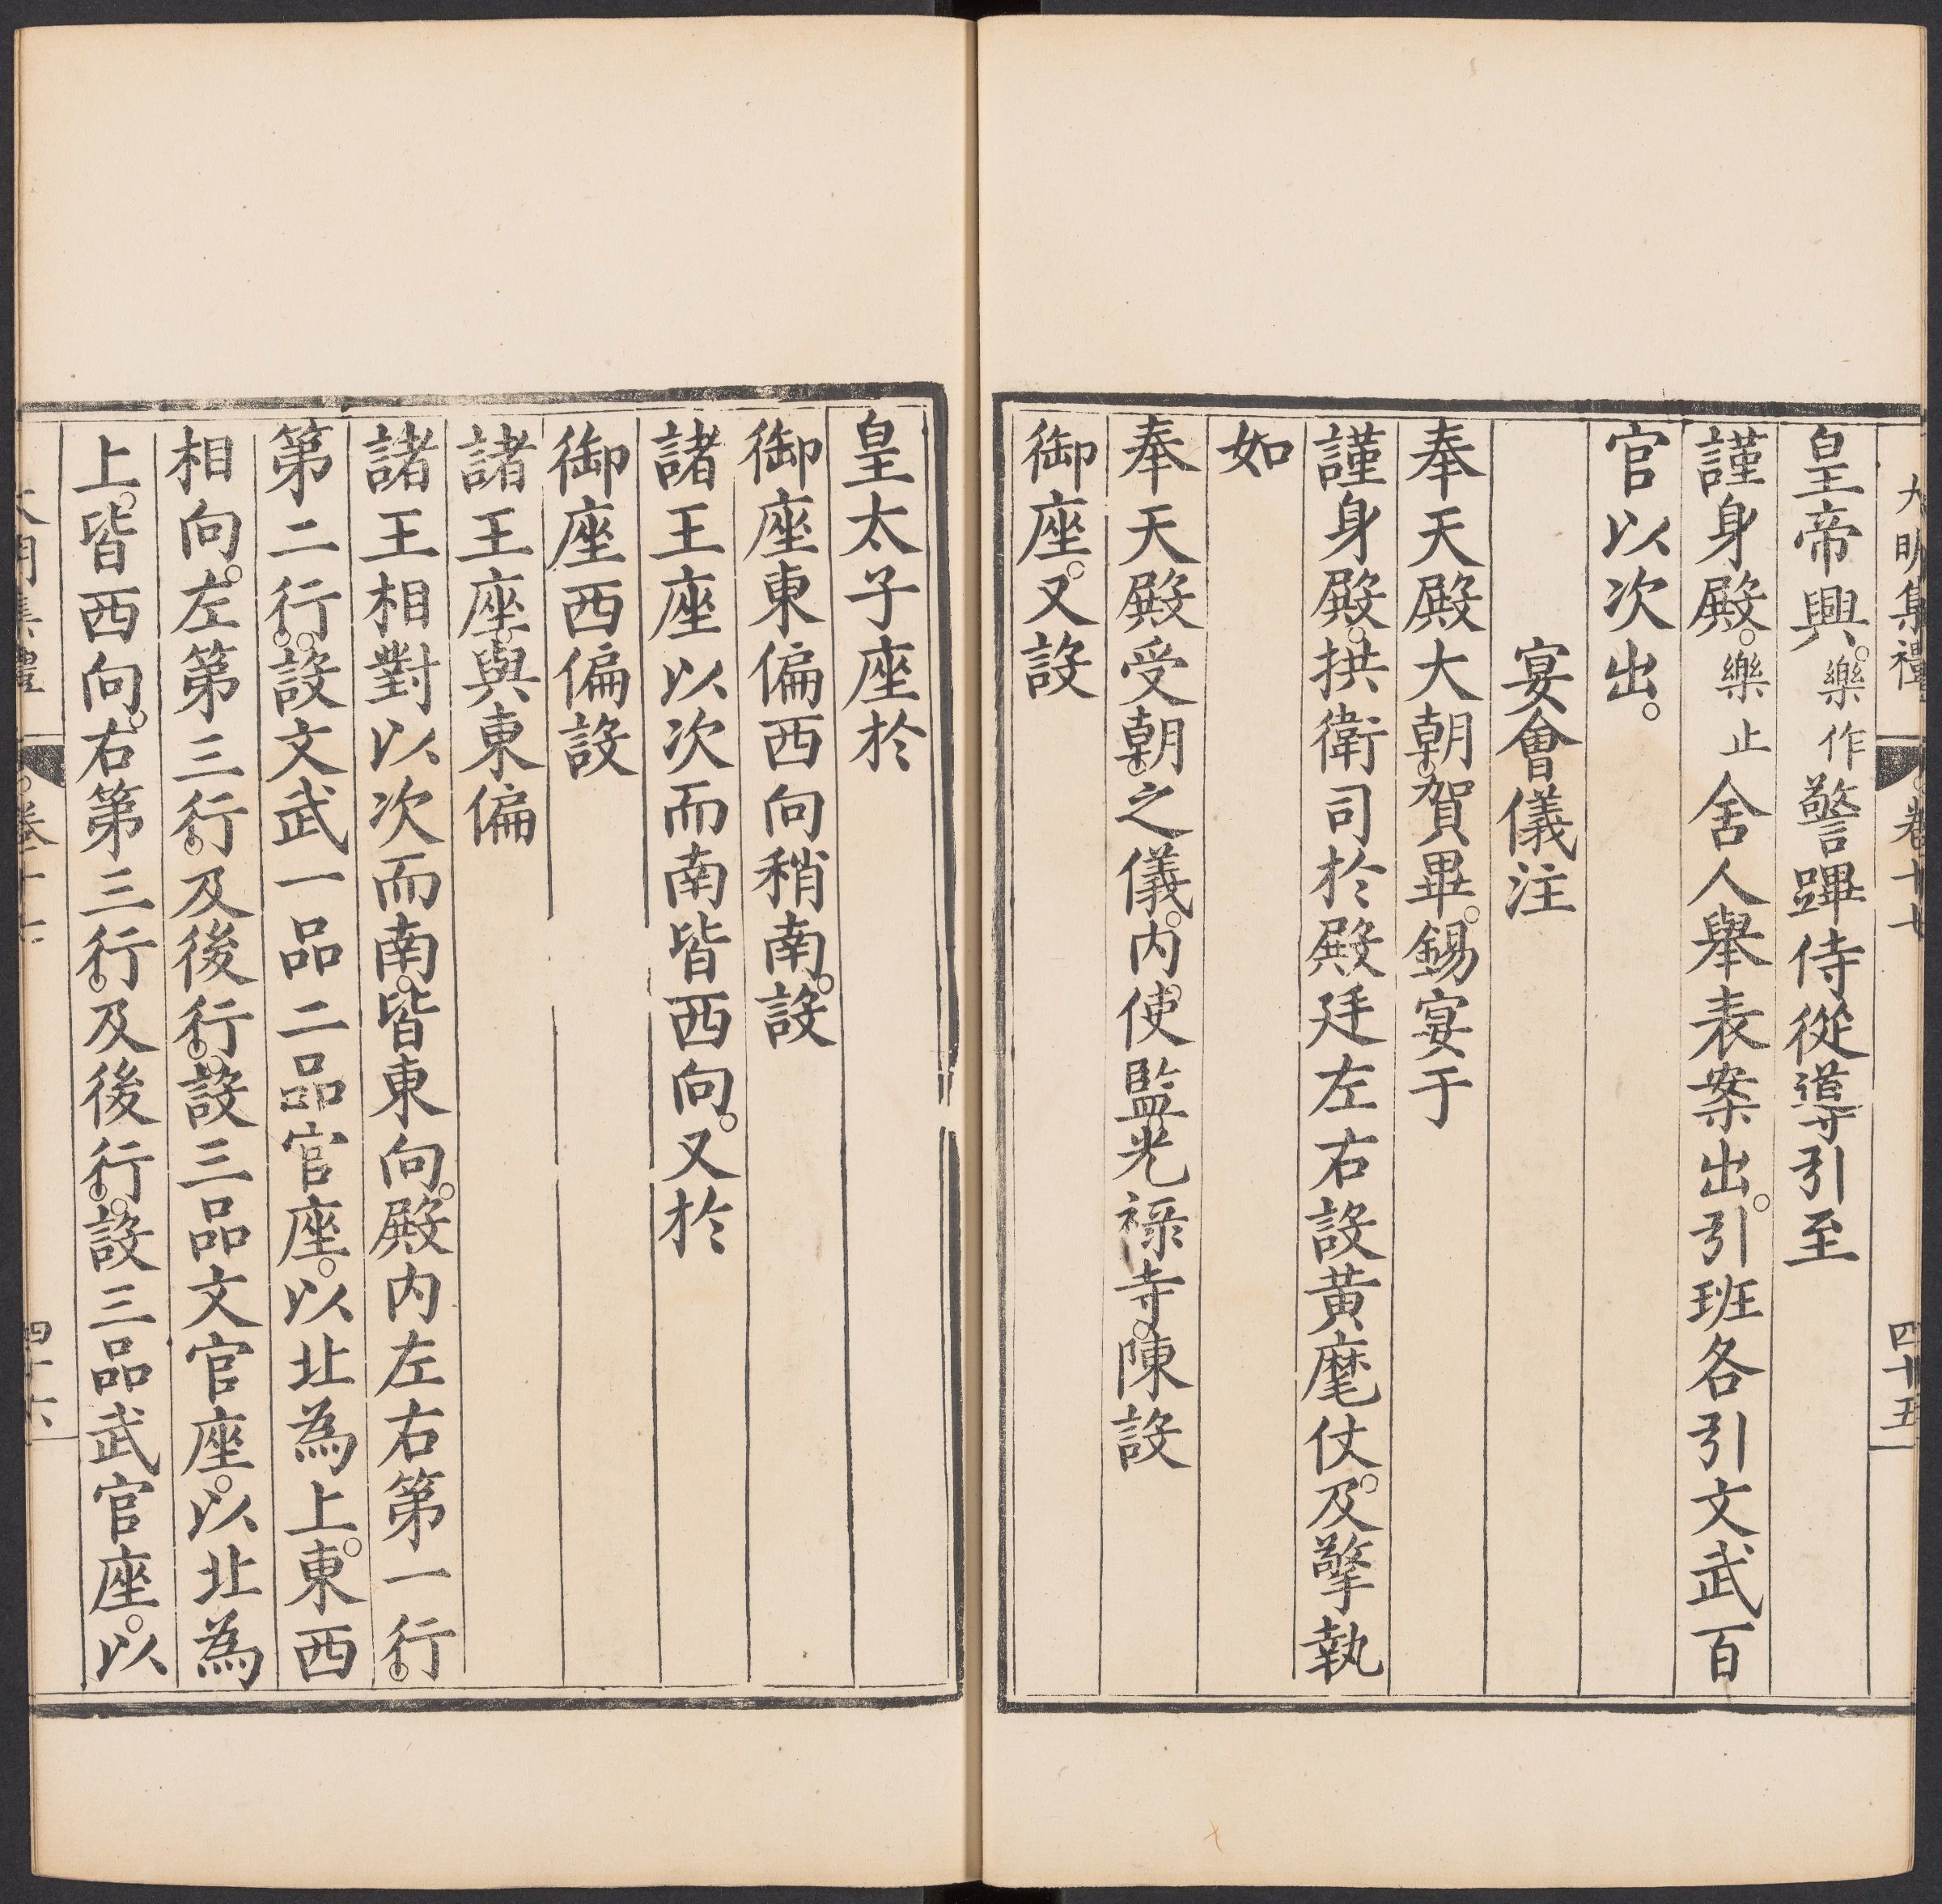 大明集禮 卷十七 四十五
皇帝興。樂作警蹕侍從導引至
謹身殿。樂止舍人舉表案出。引班各引文武百
官以次出。
宴會儀注
奉天殿大朝。賀畢。錫宴于
謹身殿。拱衛司於殿廷左右設黃麾仗。及擎執
如
奉天殿受朝。之儀。内。使監光禄寺。陳設
御座。又設
皇太子座於
御座東偏西向稍南。設
諸王座以次而南皆西向。又於
御座西偏設
諸王座。與東偏
諸王相對以次而南。皆東向。殿内左右第一行。
第二行。設文武一品二品官座。以北為上。東西
相向。左第三行。及後行。設三品文官座。以北為
上。皆西向。右第三行。及後行。設三品武官座。以
大明集禮 卷十七 四十六